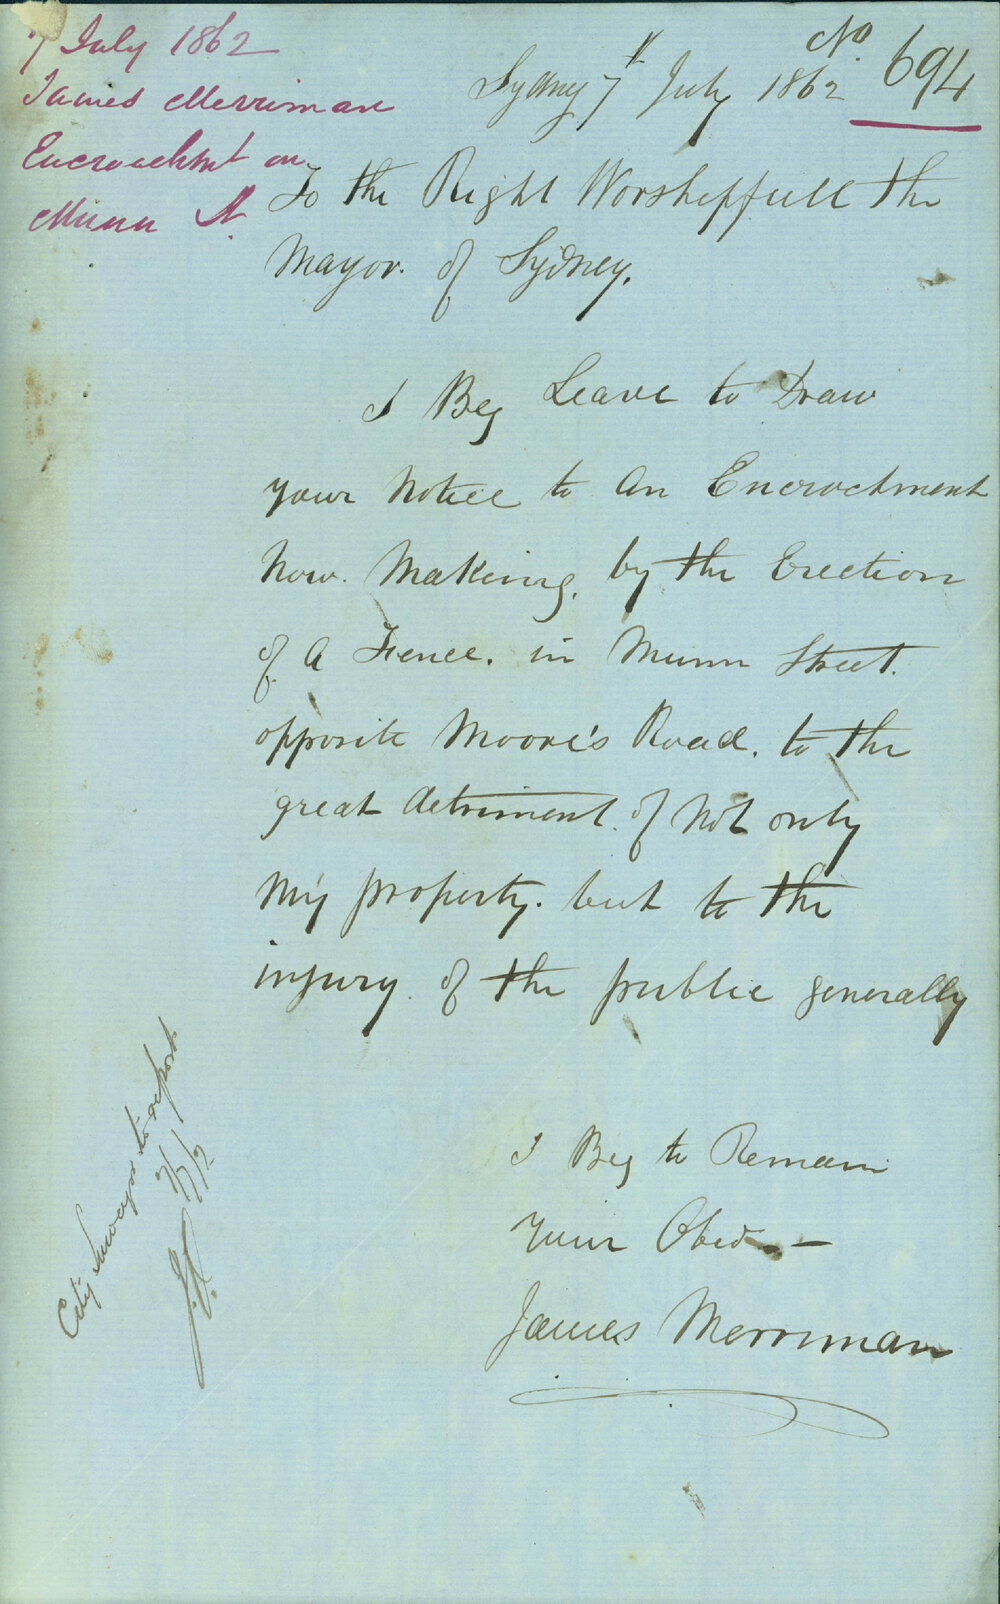 7 July 1862
James Merriman
Encroachmt on
Munn St
No 694
Sydney 7th July 1862
To the Right Worshepfull the
Mayor. of Sydney.
I Beg Leave to Draw
your Notice to An Encrochment
Now. Making, by the Erection
of A Fence. in Munn Street.
opposite Moore's Road. to the
great detriment. of Not only
My property. but to the
injury. of the public generally
I Beg to Remain
Your Obed —
James Merriman
City Surveyor to report